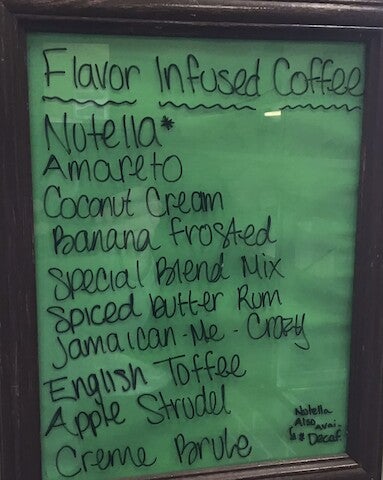 Flavor Infused Coffee
Nutella*
Amareto
Coconut Cream
Banana Frosted
Special Blend Mix
Spiced Butter Rum
Jamaican-Me-Crazy
English Toffee
Apple Strudel
Creme Brule
Nutella
Also
avai-
Decaf